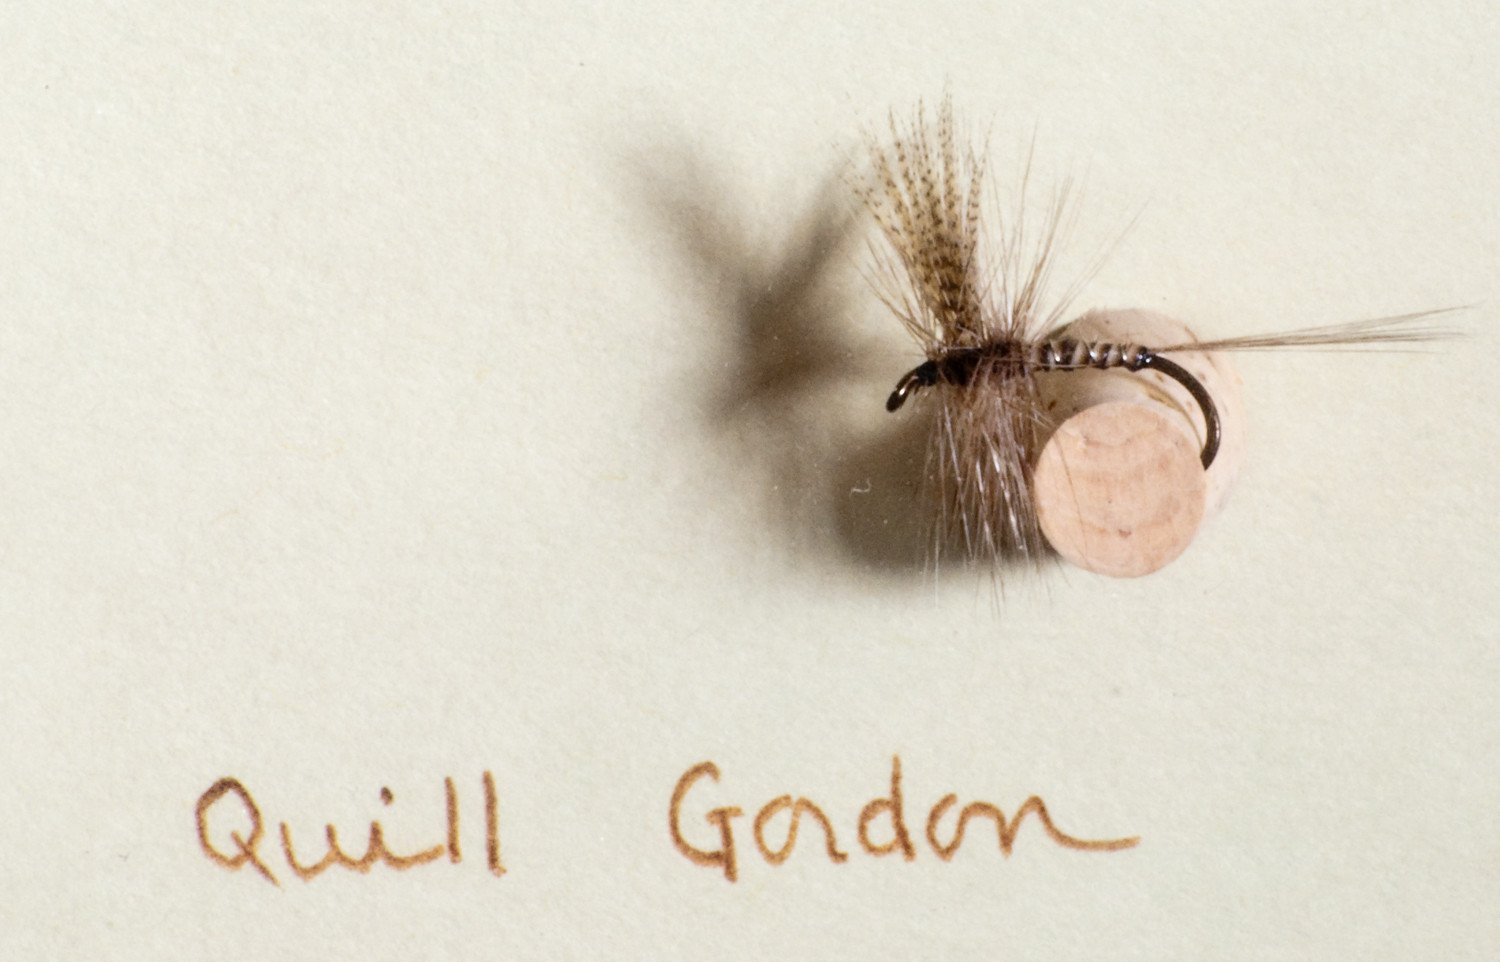 Quill Gordon